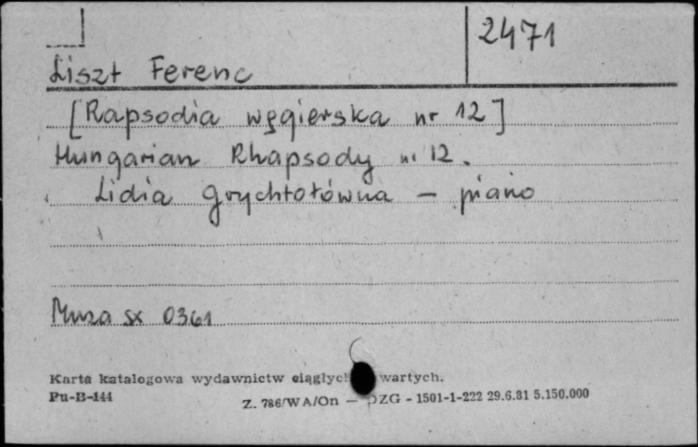 2471
Liszt Ferenc
[Rapsodia węgierska nr 12]
Hungarian Rhapsody nr 12.
Lidia Grychtołówna – piano
Muza sx 0361
Karta katalogowa wydawnictw ciągłych wartych.
Pu-B-144
Z. 786/WA/On — DZG - 1501-1-222 29.6.81 5.150.000